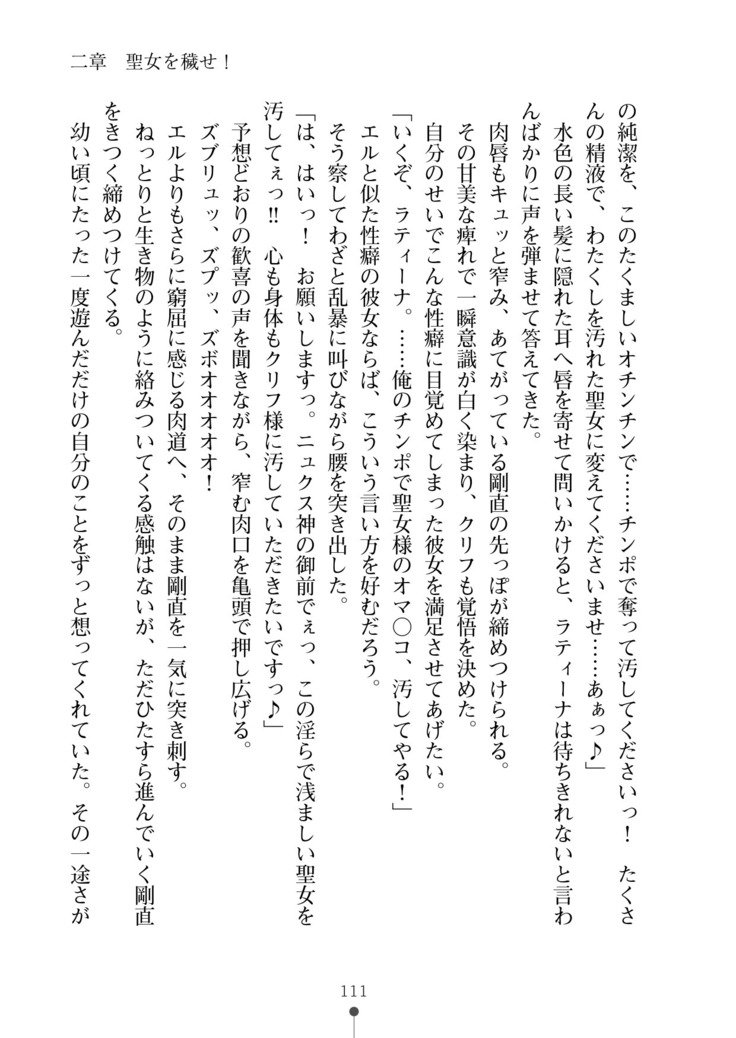 二章　聖女を穢せ！
の純潔を、このたくましいオチンチンで……チンポで奪って汚してくださいっ！　たくさ
んの精液で、わたくしを汚れた聖女に変えてくださいませ……あぁっ♪」
水色の長い髪に隠れた耳へ唇を寄せて問いかけると、ラティーナは待ちきれないと言わ
んばかりに声を弾ませて答えてきた。
肉唇もキュッと窄み、あてがっている剛直の先っぽが締めつけられる。
その甘美な痺れで一瞬意識が白く染まり、クリフも覚悟を決めた。
自分のせいでこんな性癖に目覚めてしまった彼女を満足させてあげたい。
「いくぞ、ラティーナ。……俺のチンポで聖女様のオマ〇コ、汚してやる！」
エルと似た性癖の彼女ならば、こういう言い方を好むだろう。
そう察してわざと乱暴に叫びながら腰を突き出した。
「は、はいっ！　お願いしますっ。ニュクス神の御前でぇっ、この淫らで浅ましい聖女を
汚してぇっ!!　心も身体もクリフ様に汚していただきたいですっ♪」
予想どおりの歓喜の声を聞きながら、窄む肉口を亀頭で押し広げる。
ズブリュッ、ズプッ、ズボオオオオオ！
エルよりもさらに窮屈に感じる肉道へ、そのまま剛直を一気に突き刺す。
ねっとりと生き物のように絡みついてくる感触はないが、ただひたすら進んでいく剛直
をきつく締めつけてくる。
幼い頃にたった一度遊んだだけの自分のことをずっと想ってくれていた。その一途さが
111